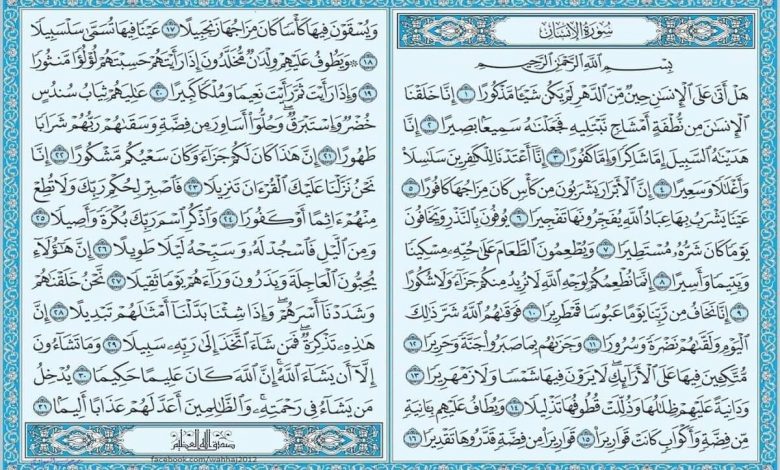 سُورَةُ الإِنسَان
بِسْمِ اللَّهِ الرَّحْمَٰنِ الرَّحِيمِ
هَلْ أَتَىٰ عَلَى الْإِنسَانِ حِينٌ مِّنَ الدَّهْرِ لَمْ يَكُن شَيْئًا مَّذْكُورًا ١ إِنَّا خَلَقْنَا
الْإِنسَانَ مِن نُّطْفَةٍ أَمْشَاجٍ نَّبْتَلِيهِ فَجَعَلْنَاهُ سَمِيعًا بَصِيرًا ٢ إِنَّا
هَدَيْنَاهُ السَّبِيلَ إِمَّا شَاكِرًا وَإِمَّا كَفُورًا ٣ إِنَّا أَعْتَدْنَا لِلْكَافِرِينَ سَلَاسِلَا
وَأَغْلَالًا وَسَعِيرًا ٤ إِنَّ الْأَبْرَارَ يَشْرَبُونَ مِن كَأْسٍ كَانَ مِزَاجُهَا كَافُورًا ٥
عَيْنًا يَشْرَبُ بِهَا عِبَادُ اللَّهِ يُفَجِّرُونَهَا تَفْجِيرًا ٦ يُوفُونَ بِالنَّذْرِ وَيَخَافُونَ
يَوْمًا كَانَ شَرُّهُ مُسْتَطِيرًا ٧ وَيُطْعِمُونَ الطَّعَامَ عَلَىٰ حُبِّهِ مِسْكِينًا
وَيَتِيمًا وَأَسِيرًا ٨ إِنَّمَا نُطْعِمُكُمْ لِوَجْهِ اللَّهِ لَا نُرِيدُ مِنكُمْ جَزَاءً وَلَا شُكُورًا
٩ إِنَّا نَخَافُ مِن رَّبِّنَا يَوْمًا عَبُوسًا قَمْطَرِيرًا ١٠ فَوَقَاهُمُ اللَّهُ شَرَّ ذَٰلِكَ
الْيَوْمِ وَلَقَّاهُمْ نَضْرَةً وَسُرُورًا ١١ وَجَزَاهُم بِمَا صَبَرُوا جَنَّةً وَحَرِيرًا ١٢
مُّتَّكِئِينَ فِيهَا عَلَى الْأَرَائِكِ ۖ لَا يَرَوْنَ فِيهَا شَمْسًا وَلَا زَمْهَرِيرًا ١٣
وَدَانِيَةً عَلَيْهِمْ ظِلَالُهَا وَذُلِّلَتْ قُطُوفُهَا تَذْلِيلًا ١٤ وَيُطَافُ عَلَيْهِم بِآنِيَةٍ
مِّن فِضَّةٍ وَأَكْوَابٍ كَانَتْ قَوَارِيرَا ١٥ قَوَارِيرَ مِن فِضَّةٍ قَدَّرُوهَا تَقْدِيرًا ١٦
وَيُسْقَوْنَ فِيهَا كَأْسًا كَانَ مِزَاجُهَا زَنجَبِيلًا ١٧ عَيْنًا فِيهَا تُسَمَّىٰ سَلْسَبِيلًا
١٨ ۞ وَيَطُوفُ عَلَيْهِمْ وِلْدَانٌ مُّخَلَّدُونَ إِذَا رَأَيْتَهُمْ حَسِبْتَهُمْ لُؤْلُؤًا مَّنثُورًا
١٩ وَإِذَا رَأَيْتَ ثَمَّ رَأَيْتَ نَعِيمًا وَمُلْكًا كَبِيرًا ٢٠ عَالِيَهُمْ ثِيَابُ سُندُسٍ
خُضْرٌ وَإِسْتَبْرَقٌ ۖ وَحُلُّوا أَسَاوِرَ مِن فِضَّةٍ وَسَقَاهُمْ رَبُّهُمْ شَرَابًا
طَهُورًا ٢١ إِنَّ هَٰذَا كَانَ لَكُمْ جَزَاءً وَكَانَ سَعْيُكُم مَّشْكُورًا ٢٢ إِنَّا
نَحْنُ نَزَّلْنَا عَلَيْكَ الْقُرْآنَ تَنزِيلًا ٢٣ فَاصْبِرْ لِحُكْمِ رَبِّكَ وَلَا تُطِعْ
مِنْهُمْ آثِمًا أَوْ كَفُورًا ٢٤ وَاذْكُرِ اسْمَ رَبِّكَ بُكْرَةً وَأَصِيلًا ٢٥
وَمِنَ اللَّيْلِ فَاسْجُدْ لَهُ وَسَبِّحْهُ لَيْلًا طَوِيلًا ٢٦ إِنَّ هَٰؤُلَاءِ
يُحِبُّونَ الْعَاجِلَةَ وَيَذَرُونَ وَرَاءَهُمْ يَوْمًا ثَقِيلًا ٢٧ نَّحْنُ خَلَقْنَاهُمْ
وَشَدَدْنَا أَسْرَهُمْ ۖ وَإِذَا شِئْنَا بَدَّلْنَا أَمْثَالَهُمْ تَبْدِيلًا ٢٨ إِنَّ
هَٰذِهِ تَذْكِرَةٌ ۖ فَمَن شَاءَ اتَّخَذَ إِلَىٰ رَبِّهِ سَبِيلًا ٢٩ وَمَا تَشَاءُونَ
إِلَّا أَن يَشَاءَ اللَّهُ ۚ إِنَّ اللَّهَ كَانَ عَلِيمًا حَكِيمًا ٣٠ يُدْخِلُ
مَن يَشَاءُ فِي رَحْمَتِهِ ۚ وَالظَّالِمِينَ أَعَدَّ لَهُمْ عَذَابًا أَلِيمًا ٣١
صدق الله العظيم
facebook.com/wahhaj2012